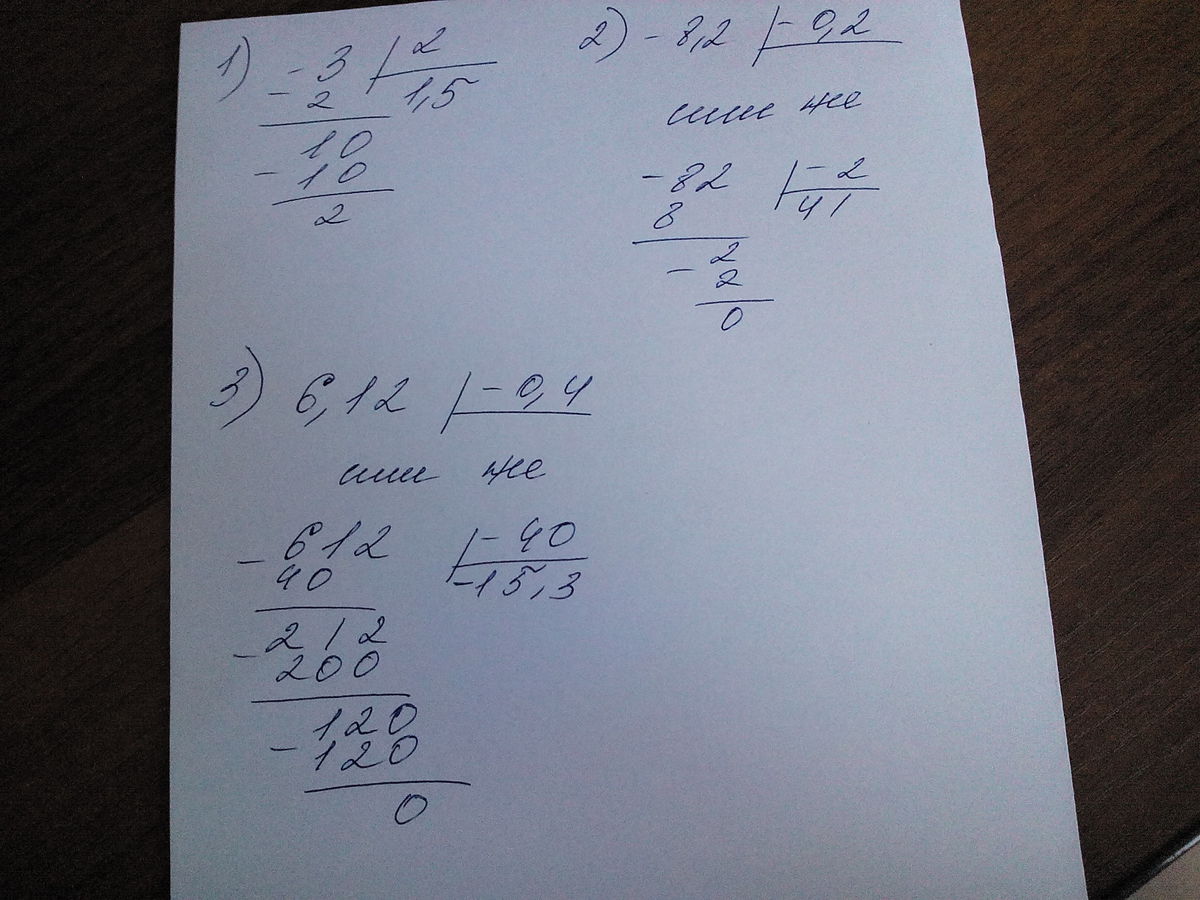 1) - 3 2
- 2 1,5
10
- 10
2
2) - 8,2 - 0,2
или же
- 82 - 2
8 41
- 2
2
0
3) 6,12 - 0,4
или же
- 612 - 40
40 -15,3
- 212
200
120
- 120
0